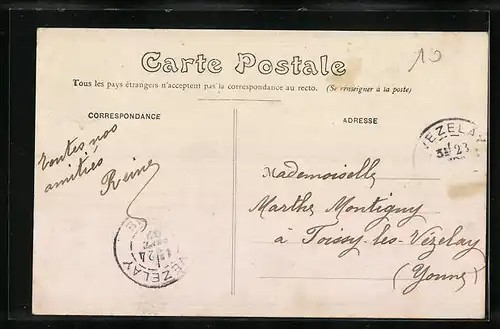 10
Carte Postale
Tous les pays étrangers n'acceptent pas la correspondance au recto. (Se renseigner à la poste)
CORRESPONDANCE
ADRESSE
toutes nos
amitiés
Reine
VEZELAY
23
Mademoiselle
Marthe Montigny
à Foissy-les-Vézelay
(Yonne)
VEZELAY
24